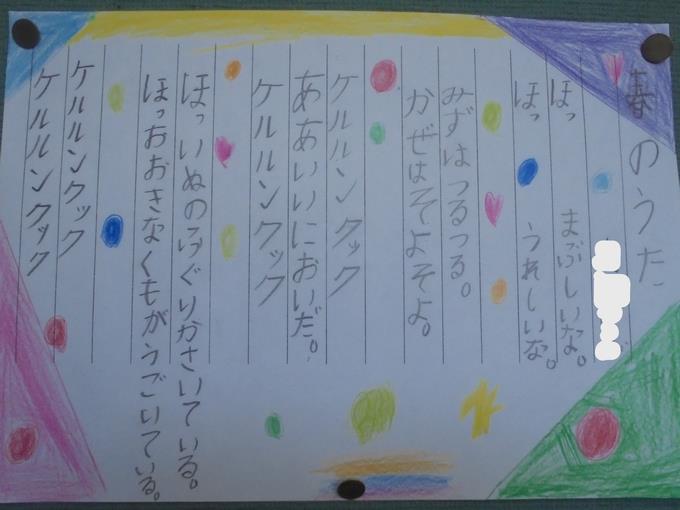 春のうた
ほっ まぶしいな。
ほっ うれしいな。
みずは つるつる。
かぜは そよそよ。
ケルルン クック
ああいいにおいだ。
ケルルン クック
ほっ いぬのふぐりがさいている。
ほっ おおきなくもがうごいている。
ケルルン クック
ケルルン クック